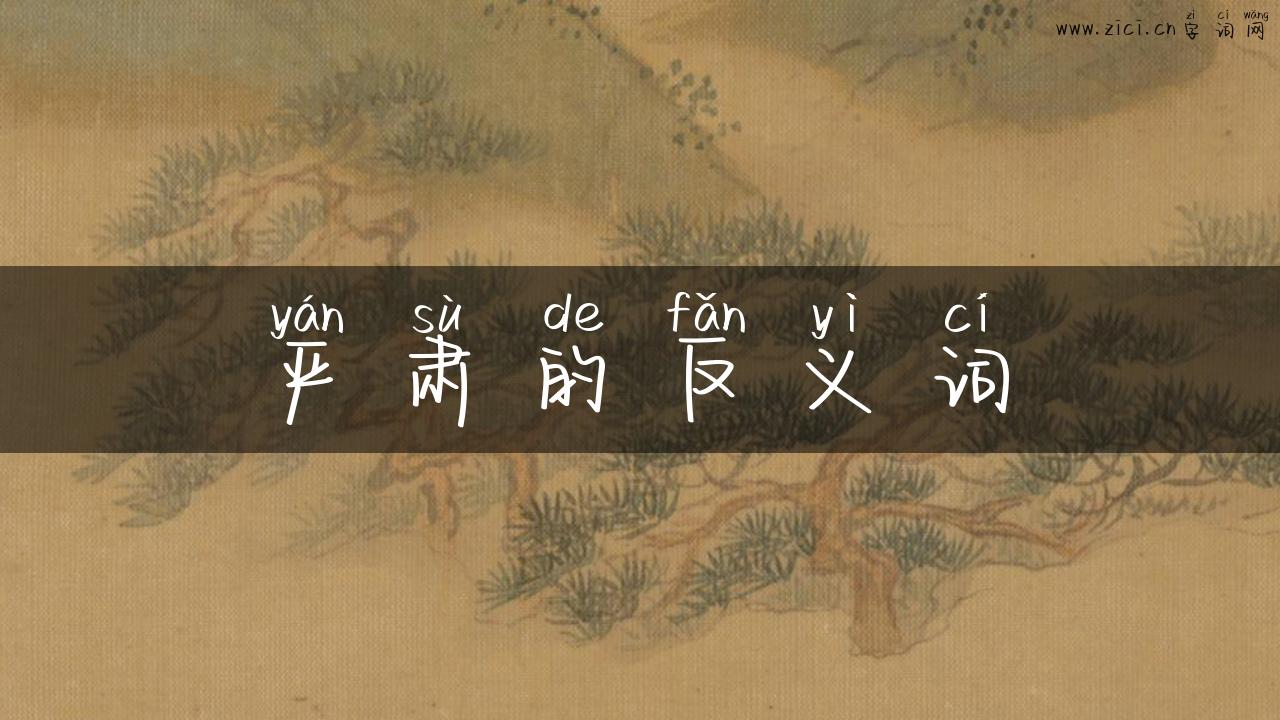 zì cí wǎng
www.zici.cn 字词网
yán sù de fǎn yì cí
严肃的反义词